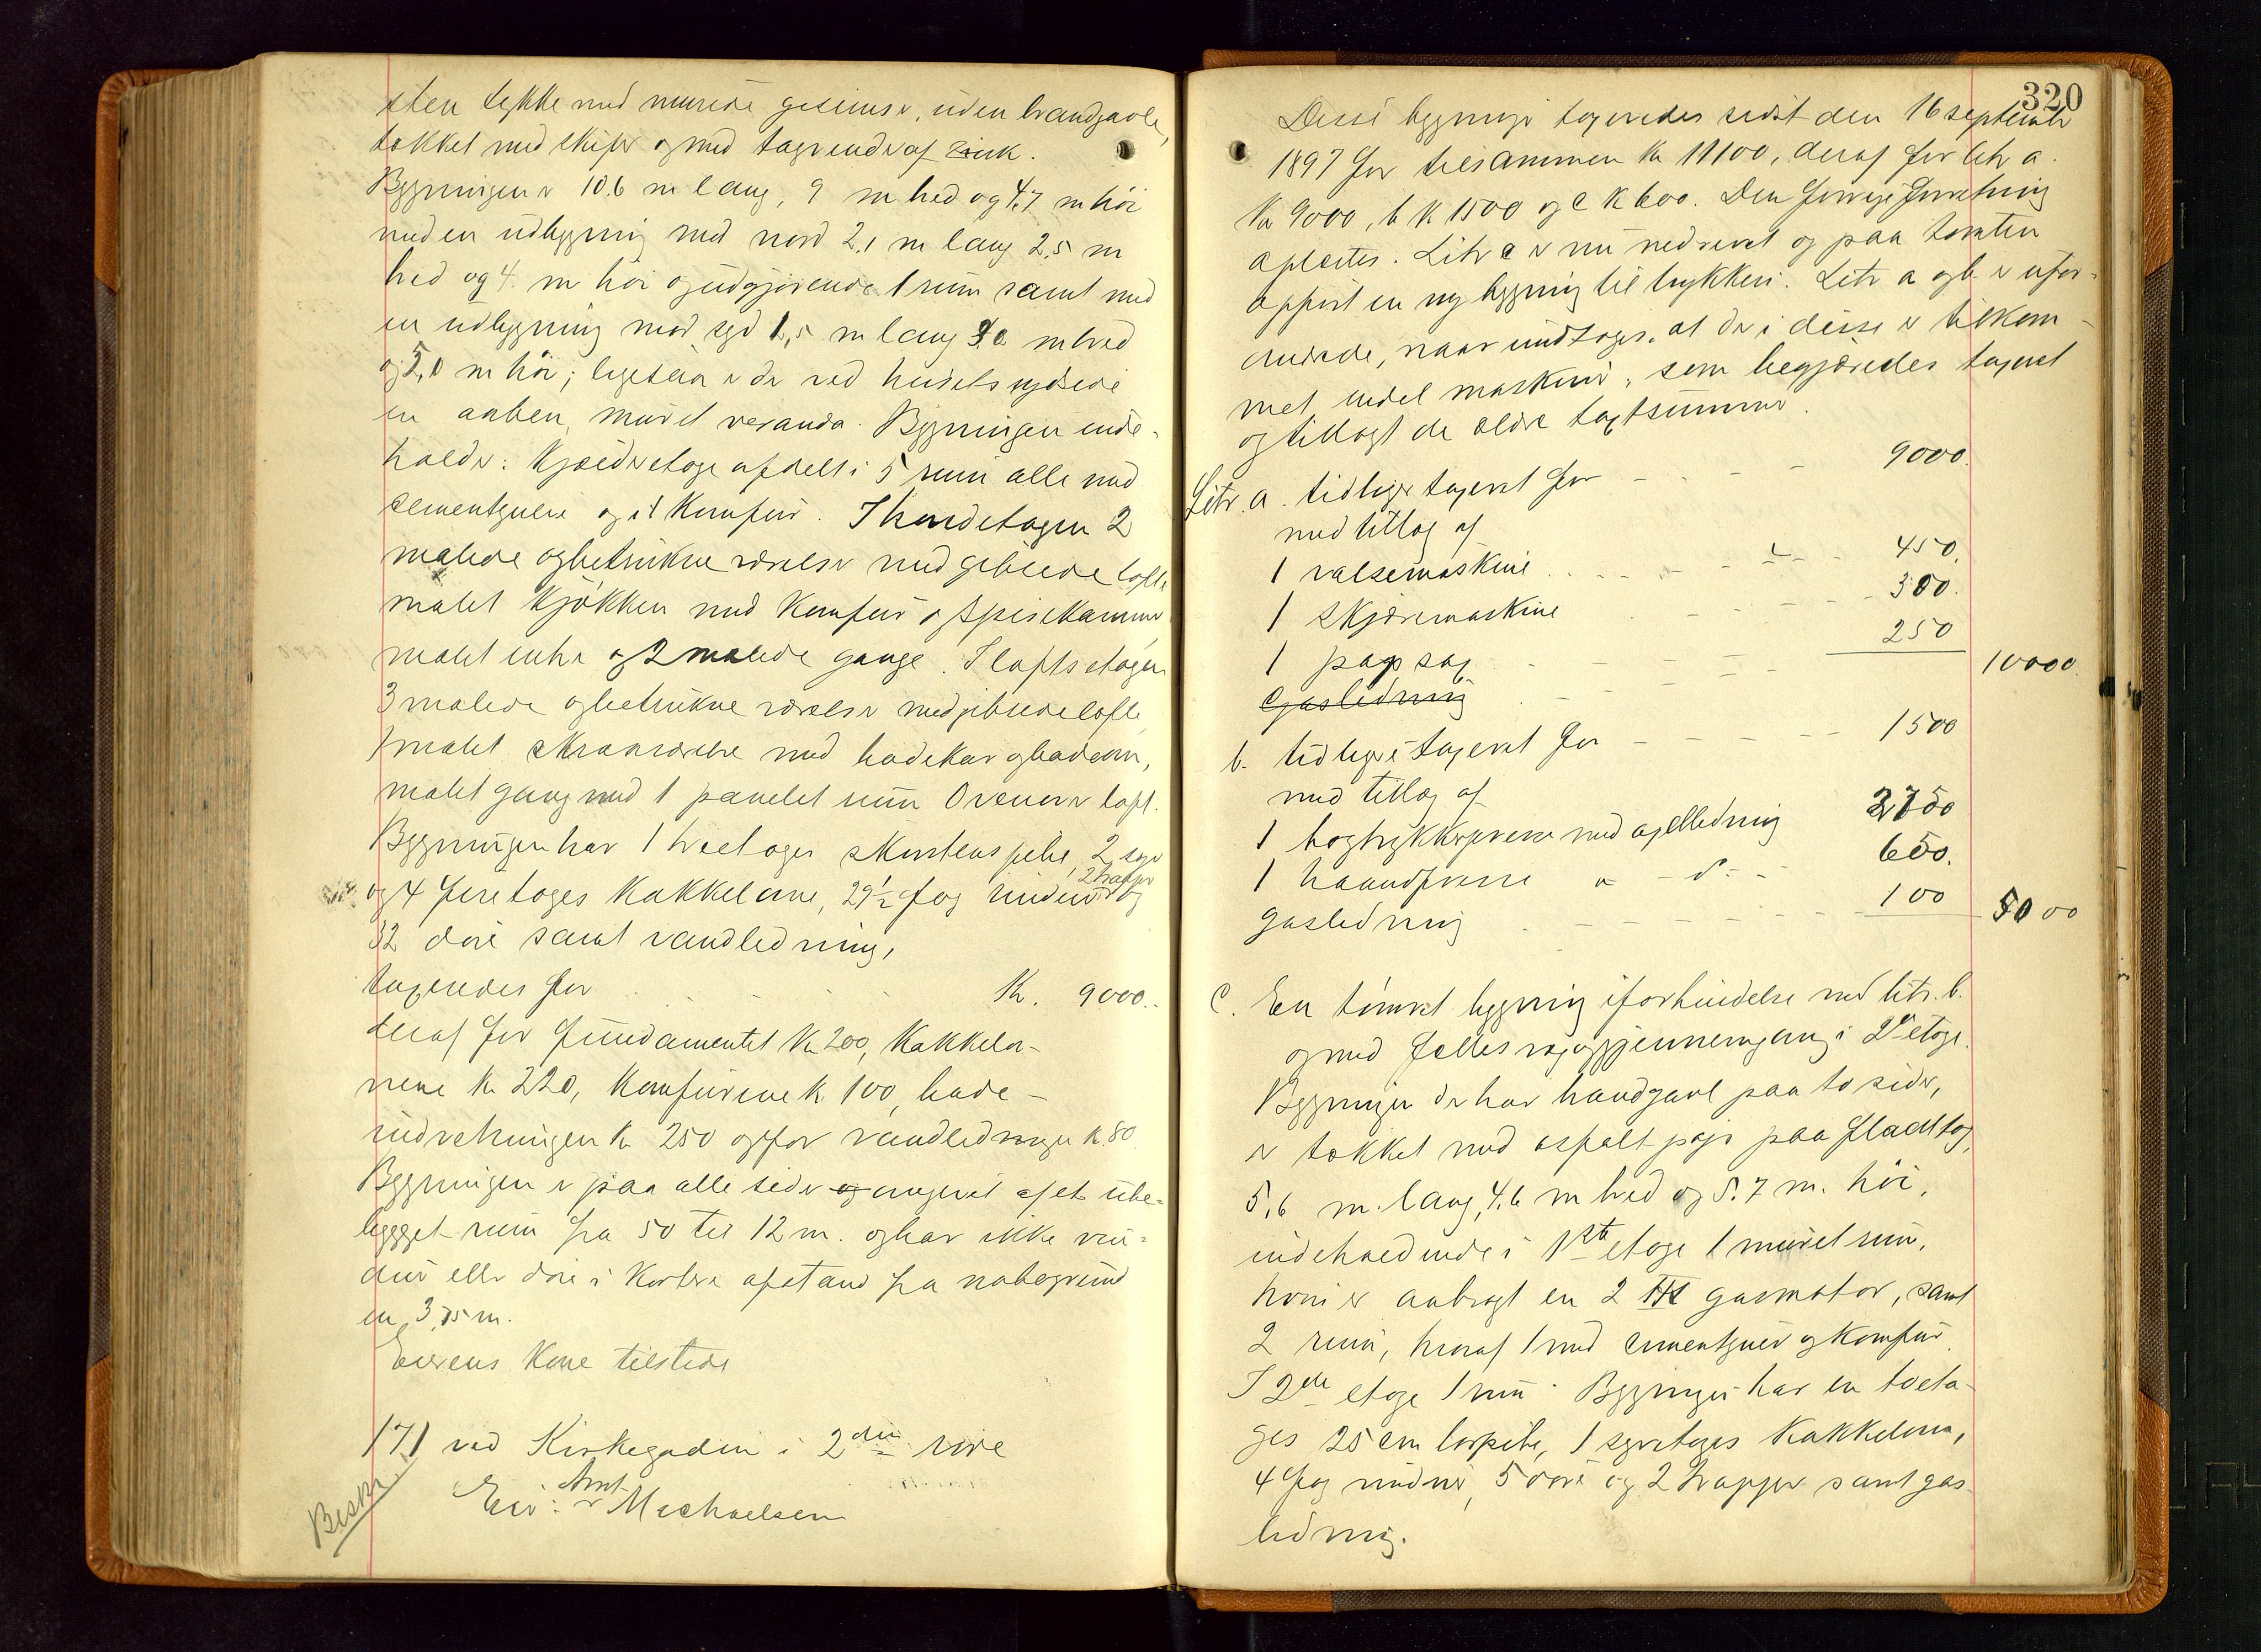 sten tykke med murede gesimser, uden brandgavle,
tækket med skifer og med tagrender af zink.
Bygningen er 10.6 m lang, 9 m bred og 4.7 m höi
med en udbygning mod nord 2.1 m lang 2.5 m
bred og 4. m höi og udgjörende 1 rum samt med
en udbygning mod syd 1,5 m lang 3.0 m bred
og 5.0 m höi; ligesaa er der ved husets sydside
en aaben, muret veranda. Bygningen inde-
holder: Kjælderetage afdelt i 5 rum alle med
cementgulve og et Komfur. I hovedetagen 2
malede og betrukne værelser med gibsede lofte
malet Kjökken med Komfur og Spisekammer
malet entre og 2 malede gange. I loftsetagen
3 malede og betrukne værelser med gibsede lofte,
1 malet skraaværelse med badekar og badeovn,
malet gang med 1 panelet rum Ovenover loft.
Bygningen har 1 treetages skorstenspibe, 2 syv
og 4 fireetages Kakkelovne, 29½ fag vinduer 2 trapper og
32 döre samt vandledning,
taxeredes for Kr. 9000.-
deraf for fundamentet Kr 200, Kakkelov-
nene Kr 220, Komfurene K. 100, bade-
indretningen Kr 250 og for vandledningen K. 80
Bygningen er paa alle sider og omgivet af et ube-
bygget rum fra 50 til 12 m. og har ikke vin-
duer eller döre i kortere afstand fra nabogrund
en 3,75 m.
Eierens Kone tilstede
171 ved Kirkegaden i 2den rode
Beskr
Eier: Arnt Michaelsen
320
Disse bygninger taxeredes sidst den 16 september
1897 for tilsammen Kr 11100, deraf for litr a.
Kr 9000, b K 1500 og c K 600. Den forrige forretning
oplæstes. Litr c er nu nedrevet og paa tomten
opfört en ny bygning til trykkeri. Litr a og b er ufor-
andrede, naar undtages, at der i disse er tilkom-
met endel maskiner, som begjæredes taxeret
og tillagt de ældre taxtsummer.
Litr. a. tidligere taxeret for - - - 9000.
med tillæg af
1 valsemaskine 450.
1 Skjæremaskine 300.
1 papsag 250 10000.
Gasledning
b. tidligere taxeret for 1500
med tillæg af
1 bogtrykkerpresse med axelledning 2750
1 haandpresse " - d°- - 650.
gasledning 100 5000
C. En tömret bygning i forbindelse med litr. b.
og med fælles væg og gjennemgang i 2den etage.
Bygningen der har brandgavl paa to sider,
er tækket med asfalt pap paa fladt tag,
5,6 m. lang, 4.6 m bred og 5.7 m. höi,
indeholdende i 1ste etage 1 muret rum,
hvori er anbragt en 2 HK gasmotor, samt
2 rum, hvoraf 1 med cementgulv og Komfur.
I 2den etage 1 rum. Bygningen har en toeta-
ges 25 cm löspibe, 1 syvetages Kakkelovn,
4 fag vinduer, 5 döre og 2 trapper samt gas-
ledning.